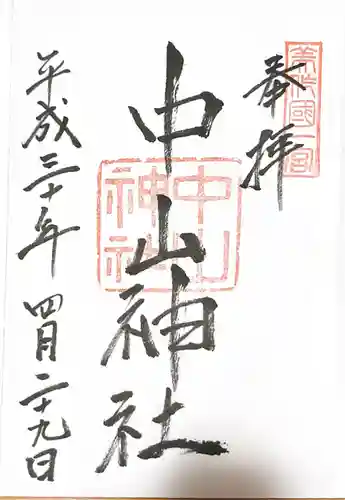 奉拝
美作國一宮
中山神社
中山神社
平成三十年四月二十九日